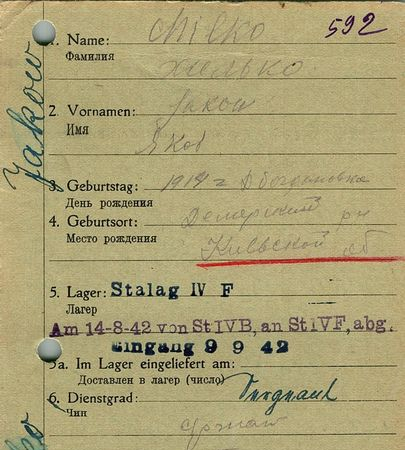 592
Jakow
1. Name: Chilko
Фамилия
Хилько
2. Vornamen: Jakow
Имя
Яков
3. Geburtstag: 1914 г
День рождения
4. Geburtsort:
Место рождения
Киевской об
5. Lager: Stalag IV F
Лагер
Am 14-8-42 von StIVB, an StIVF, abg.
Eingang 9 9 42
5a. Im Lager eingeliefert am:
Доставлен в лагер (число)
6. Dienstgrad: Sergeant
Чин